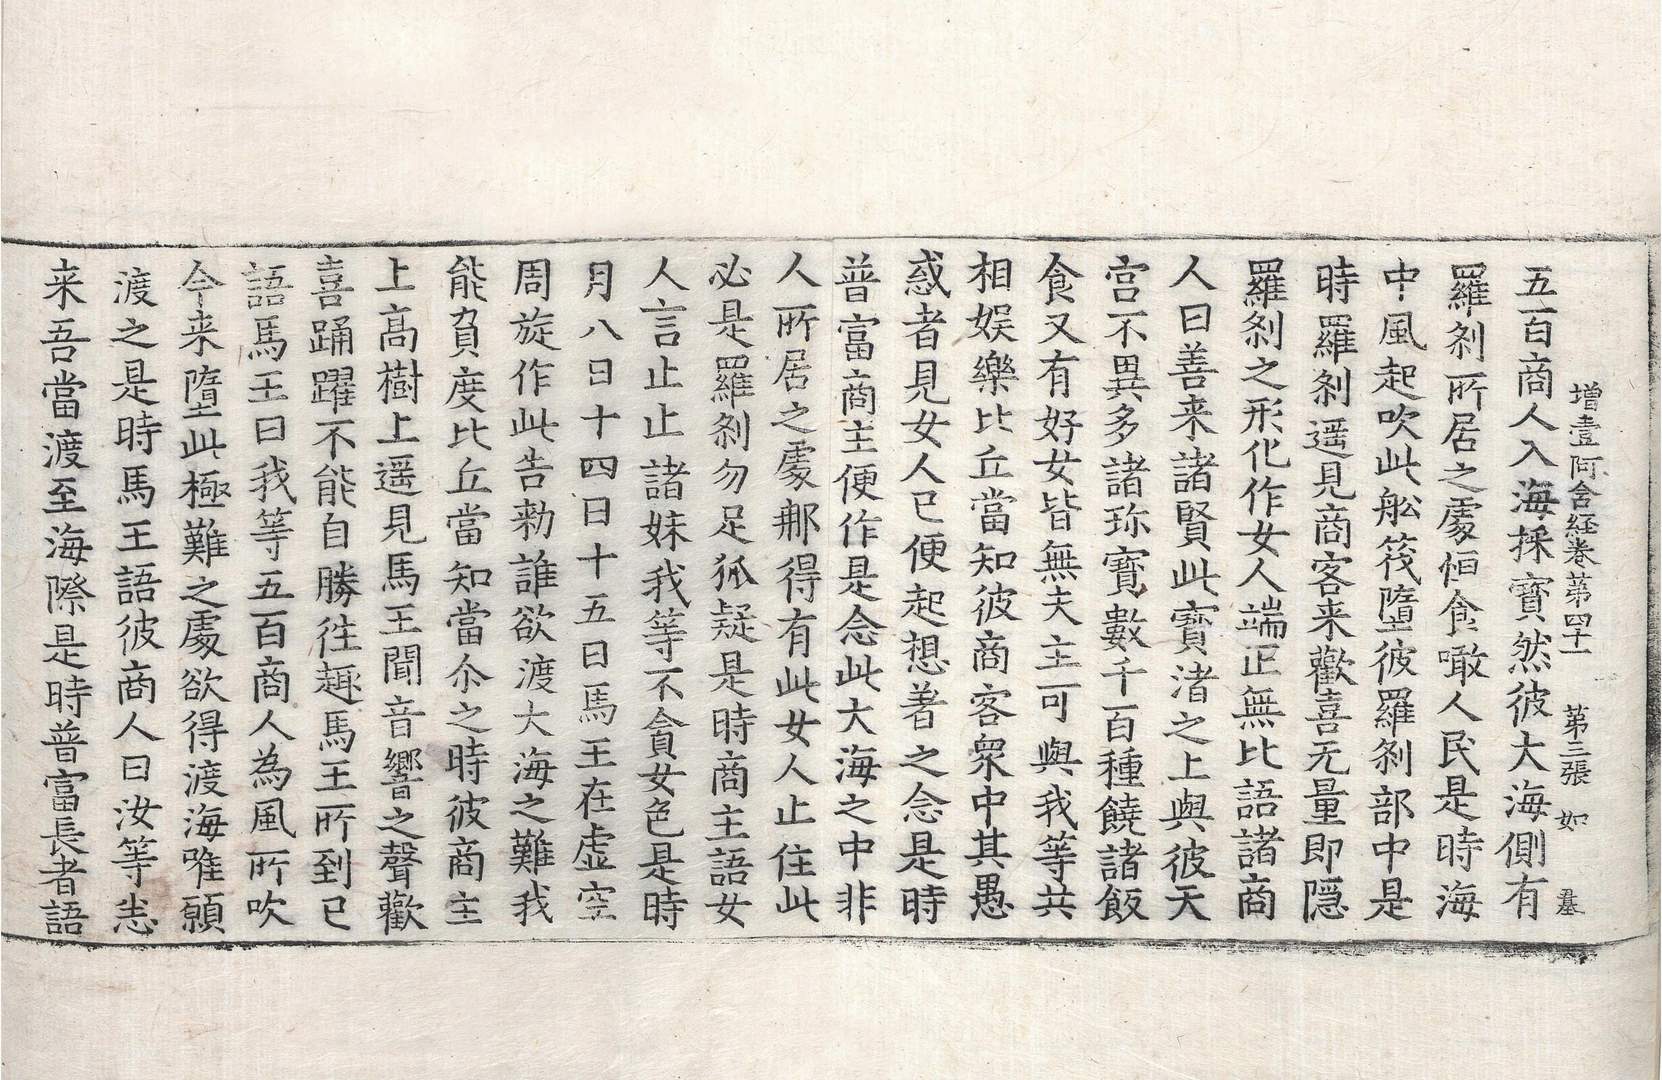 增壹阿含経卷第四十一　第三張　如
五百商人入海採寶然彼大海側有
羅刹所居之處恒食噉人民是時海
中風起吹此舩筏墮彼羅刹部中是
時羅刹遥見商客来歡喜无量即隠
羅刹之形化作女人端正無比語諸商
人曰善来諸賢此寶渚之上與彼天
宫不異多諸珎寶數千百種饒諸飯
食又有好女皆無夫主可與我等共
相娯樂比丘當知彼商客衆中其愚
惑者見女人已便起想著之念是時
普富商主便作是念此大海之中非
人所居之處那得有此女人止住此
必是羅刹勿足狐疑是時商主語女
人言止止諸妹我等不貪女色是時
月八日十四日十五日馬王在虚空
周旋作此告勑誰欲渡大海之難我
能負度比丘當知當尒之時彼商主
上高樹上遥見馬王聞音響之聲歡
喜踊躍不能自勝徃趣馬王所到已
語馬王曰我等五百商人為風所吹
今来墮此極難之處欲得渡海唯願
渡之是時馬王語彼商人曰汝等悉
来吾當渡至海際是時普富長者語